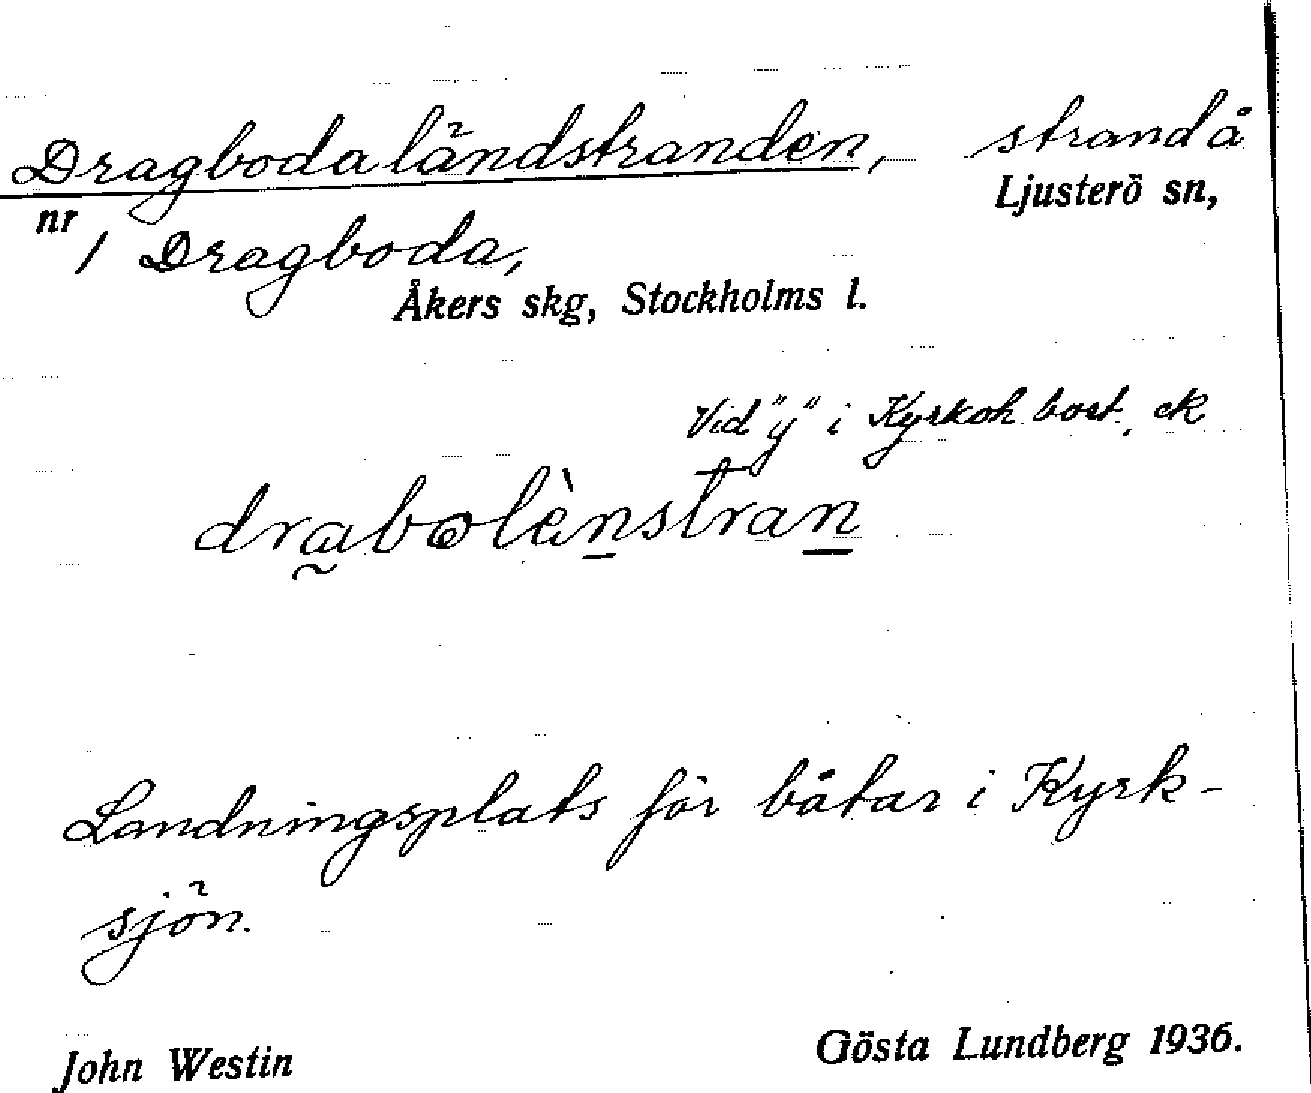 Dragbodaländstranden, strand å
Ljusterö sn,
nr 1 Dragboda,
Åkers skg, Stockholms l.
Vid "y" i Kyrkoh. bost. ek
drabolènstran
Landningsplats för båtar i Kyrk-
sjön.
John Westin Gösta Lundberg 1936.